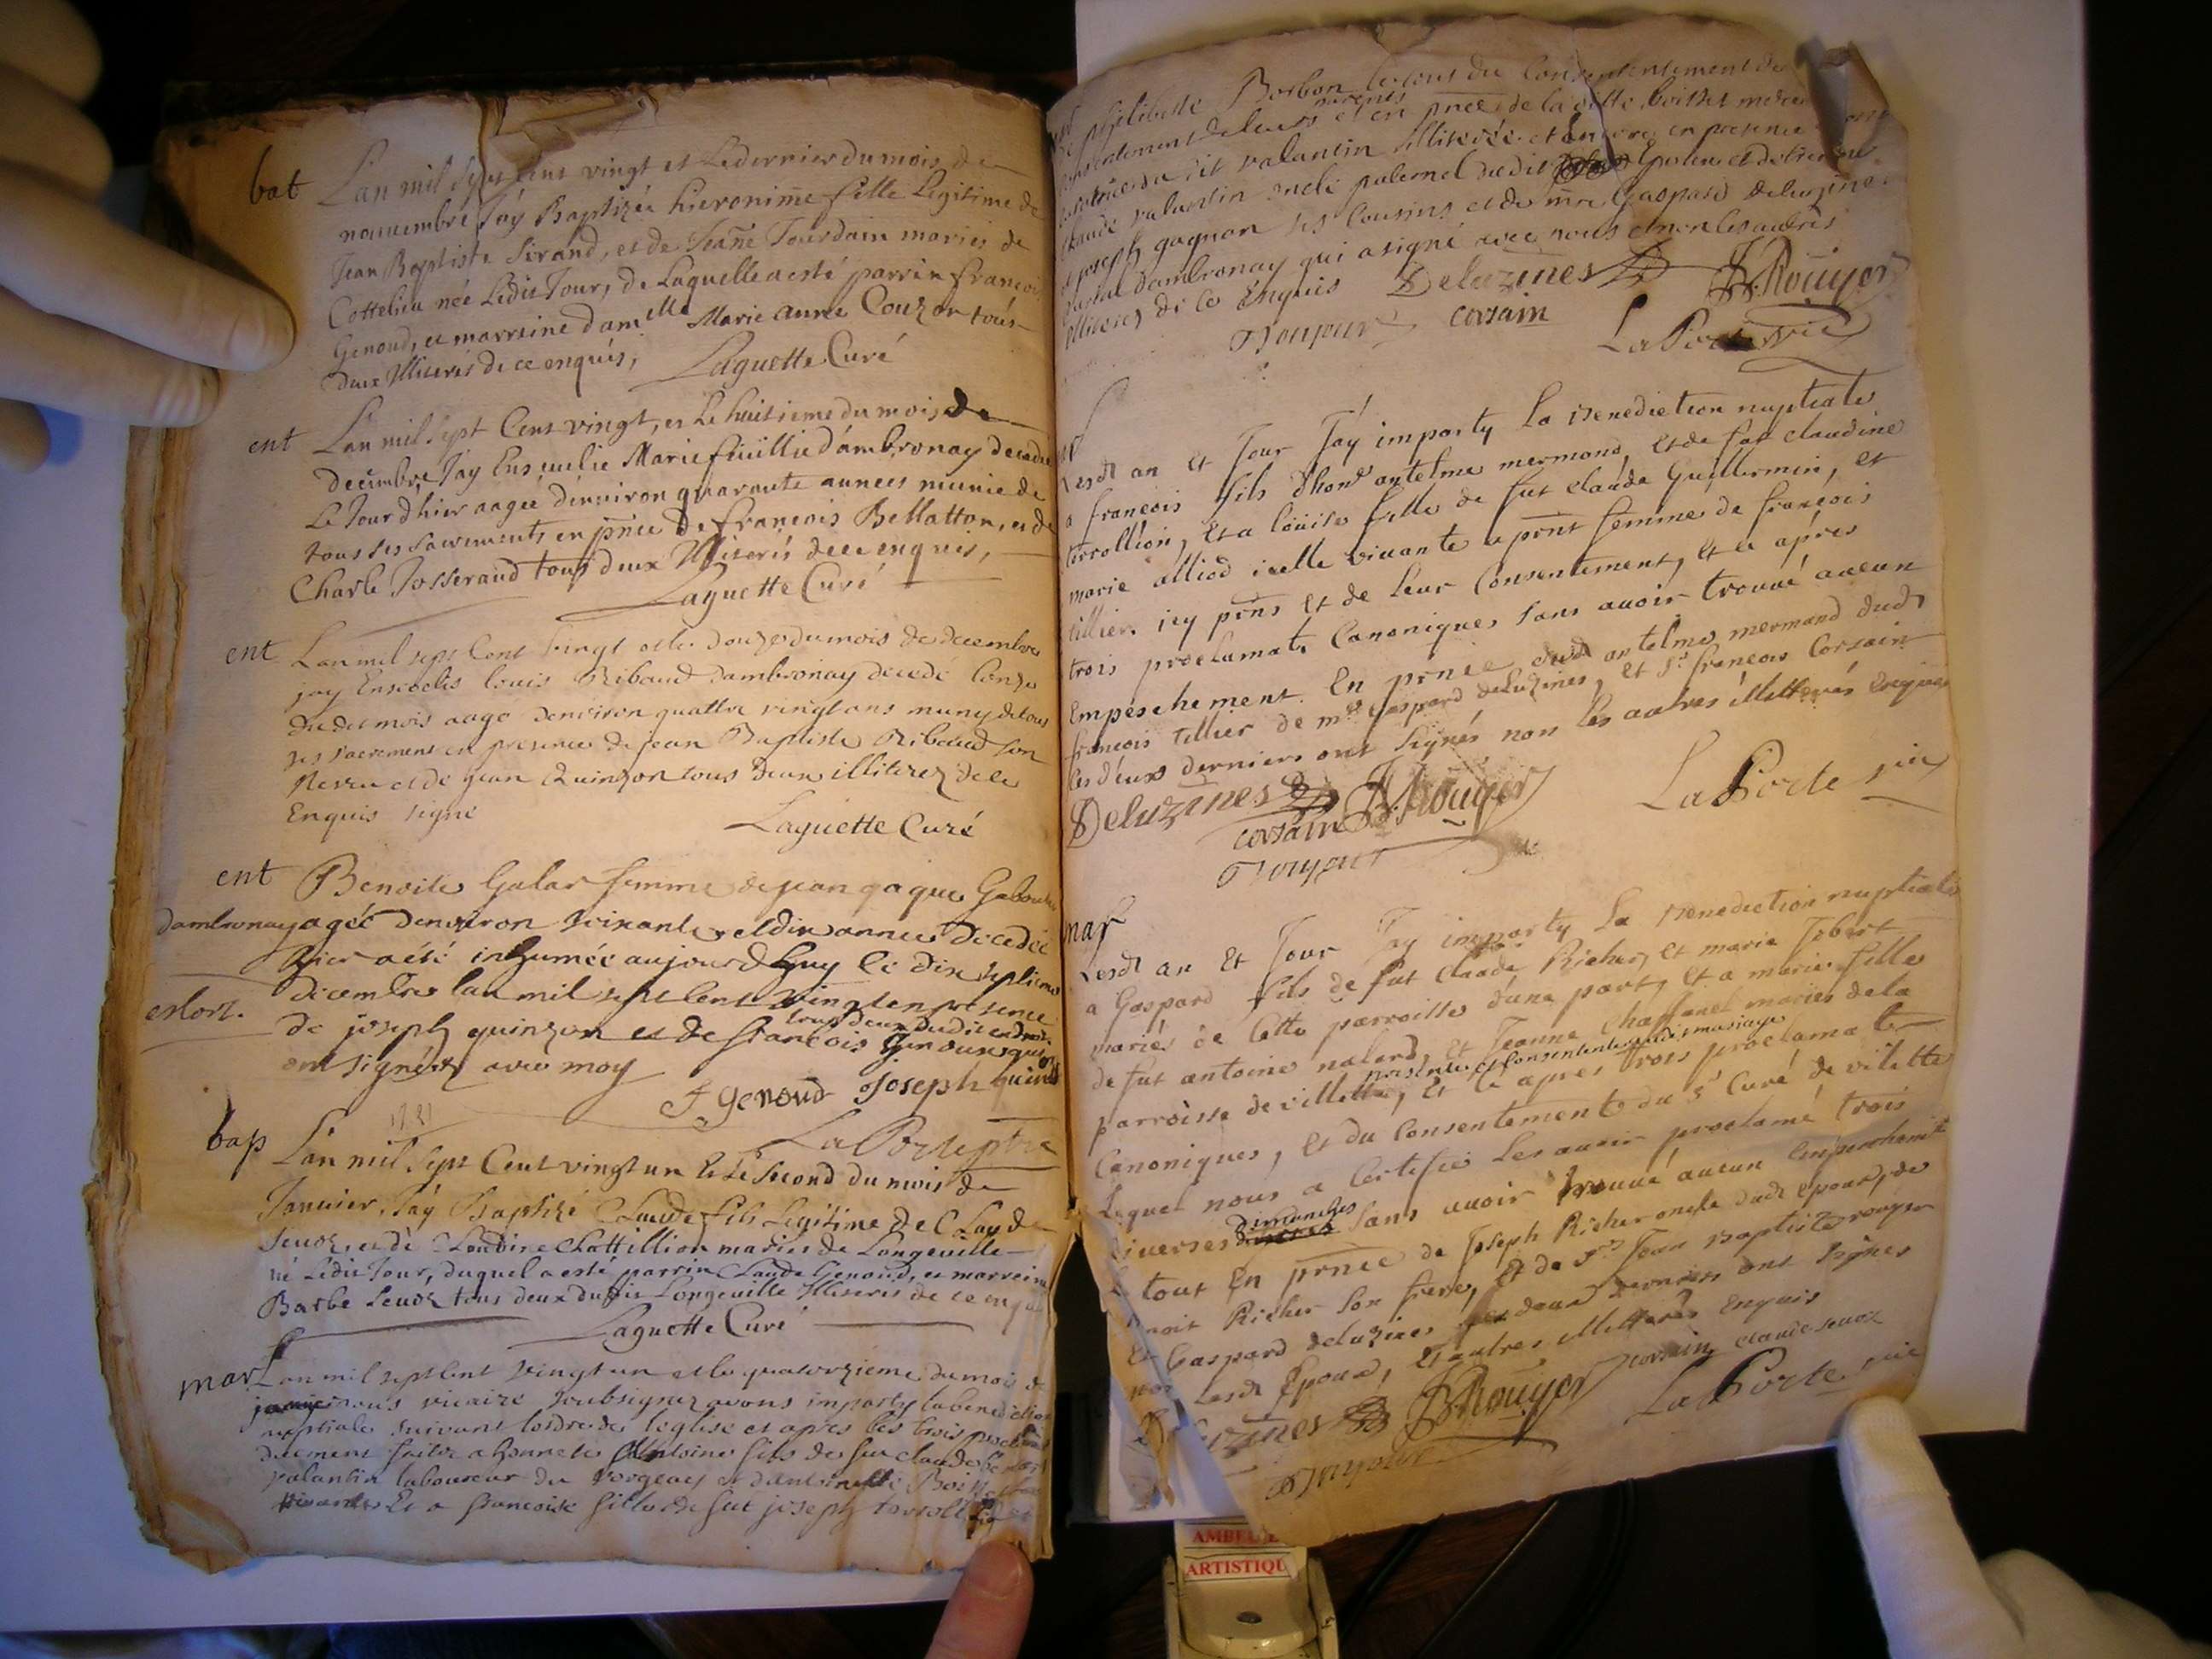 bat
L'an mil sept cent vingt et le dernier du mois de
nouuembre J'áy Baptizée hieronime fille Legitime de
Jean Baptiste Sirand, et de Jeañe Jourdain mariés de
Cottelieu née Ledit Jour, de Laquelle a esté parrin francois
Genoud, et marreine dam^lle Marie Anne Couzon tous
deux Illiterés de ce enquis,
Laguette Curé
ent
L'an mil sept Cent vingt, et Le huitieme du mois de
decembre J'ay Enseuelie Marie d'ambronay decedée
Le Jour d'hier aagée d'enuiron quarante années munie de
tous ses sacrements en pñce de francois Bellatton, et de
Charle Josserand tous deux Illiterés de ce enquis,
Laguette Curé
ent
L'an mil sept Cent vingt et le douze du mois de decembre
jay Enseuelis louis Ribaud dambronay decedé Lonze
dudit mois aagé denviron quattre vingt ans muny de tous
ses sacrement en presence de jean Baptiste Ribaud son
Neveu et de jean Quinson tous deux illiterez de ce
Enquis signé
Laguette Curé
ent
Benoite Galas femme de jean
dambronay agée denviron soixante et dix annees decedée
hier a été inhumée aujourdhuy le dix septieme
decembre lan mil sept cent vingt en presence
de joseph quinson et de francois Genoux qui
tous deux dudit
ont signés avec moy
F Genoud Joseph quinson
LaPorte ptre
1721
bap
L'an mil sept Cent vingt un et Le second du mois de
Januier J'áy Baptizé Claude fils Legitime de Claude
Seuoz, et de Claudine Chattillion mariés de Longeuille
né Ledit Jour, duquel a esté parrin Claude Genoud, et marreine
Barbe Seuoz tous deux dudit Longeuille Illiterés de ce enquis
Laguette Curé
mar
Lan mil sept cent vingt un et le quatorzieme du mois de
nous vicaire soubsignez avons imparty la benediction
nuptiale suivant lordre de leglise et apres les trois
duement faitte a honnete Antoine fils de feu claude
valantin laboureur du et dantoinette
Et a francoise fille de fut joseph
philiberte Borbon le tout du Consentement de
parents
et en pñce de la ditte
dudit valantin illiterée et encore en presence
claude valantin oncle paternel dudit Epoux et detienne
et joseph gagnon ses cousins et de mre Gaspard deluzines
dambronay qui a signé avec nous et non les autres
illiterez de ce Enquis
Deluzines JBRouyer
corsain
LaPorte vic
Lesdt an et Jour J'áy imparty la Benediction nuptiale
a francois fils d'hon^e antelme mermand, et de fût claudine
et a loüise fille de fut claude Guillermin, et
marie alliod icelle viuante a pñnt femme de francois
tillier icy pñns et de leur Consentement, et ce aprés
trois proclamats Canoniques sans auoir trouué aucun
Empéschement. En pñnce dudt antelme mermand dudt
francois tillier de m^re Gaspard deluzines, et S^r francois Corsain
les d'eux derniers ont signés non les autres illitterés enquis
Deluzines JBRouyer
corsain
LaPorte vic
mar
Lesdt an et Jour J'ay imparty La Benediction nuptiale
a Gaspard fils de fut Claude Richer, et marie Jobert
mariés de cette parroisse d'une part, et a marie fille
de fut antoine nalard, et Jeanne Chaffanel mariés de la
presente et consentente audit mariage
parroisse de villette, et ce apres trois proclamats
Canoniques, et du Consentement du S^r Curé de vilette
Lequel nous a certifié les auoir proclamé trois
dimanches
diverses sans auoir trouué aucun Empeschem^t
Le tout En pñnce de Joseph Richer oncle dudt epoux, de
Benoit Richer son frere, et de S^r Jean Baptiste rouyer
et Gaspard deluzines les deux derniers ont signés
non Lesdt Epoux, et autres illitterés Enquis
Deluzines JBRouyer corsain claude seuoz
LaPorte vic
ARTISTIQU